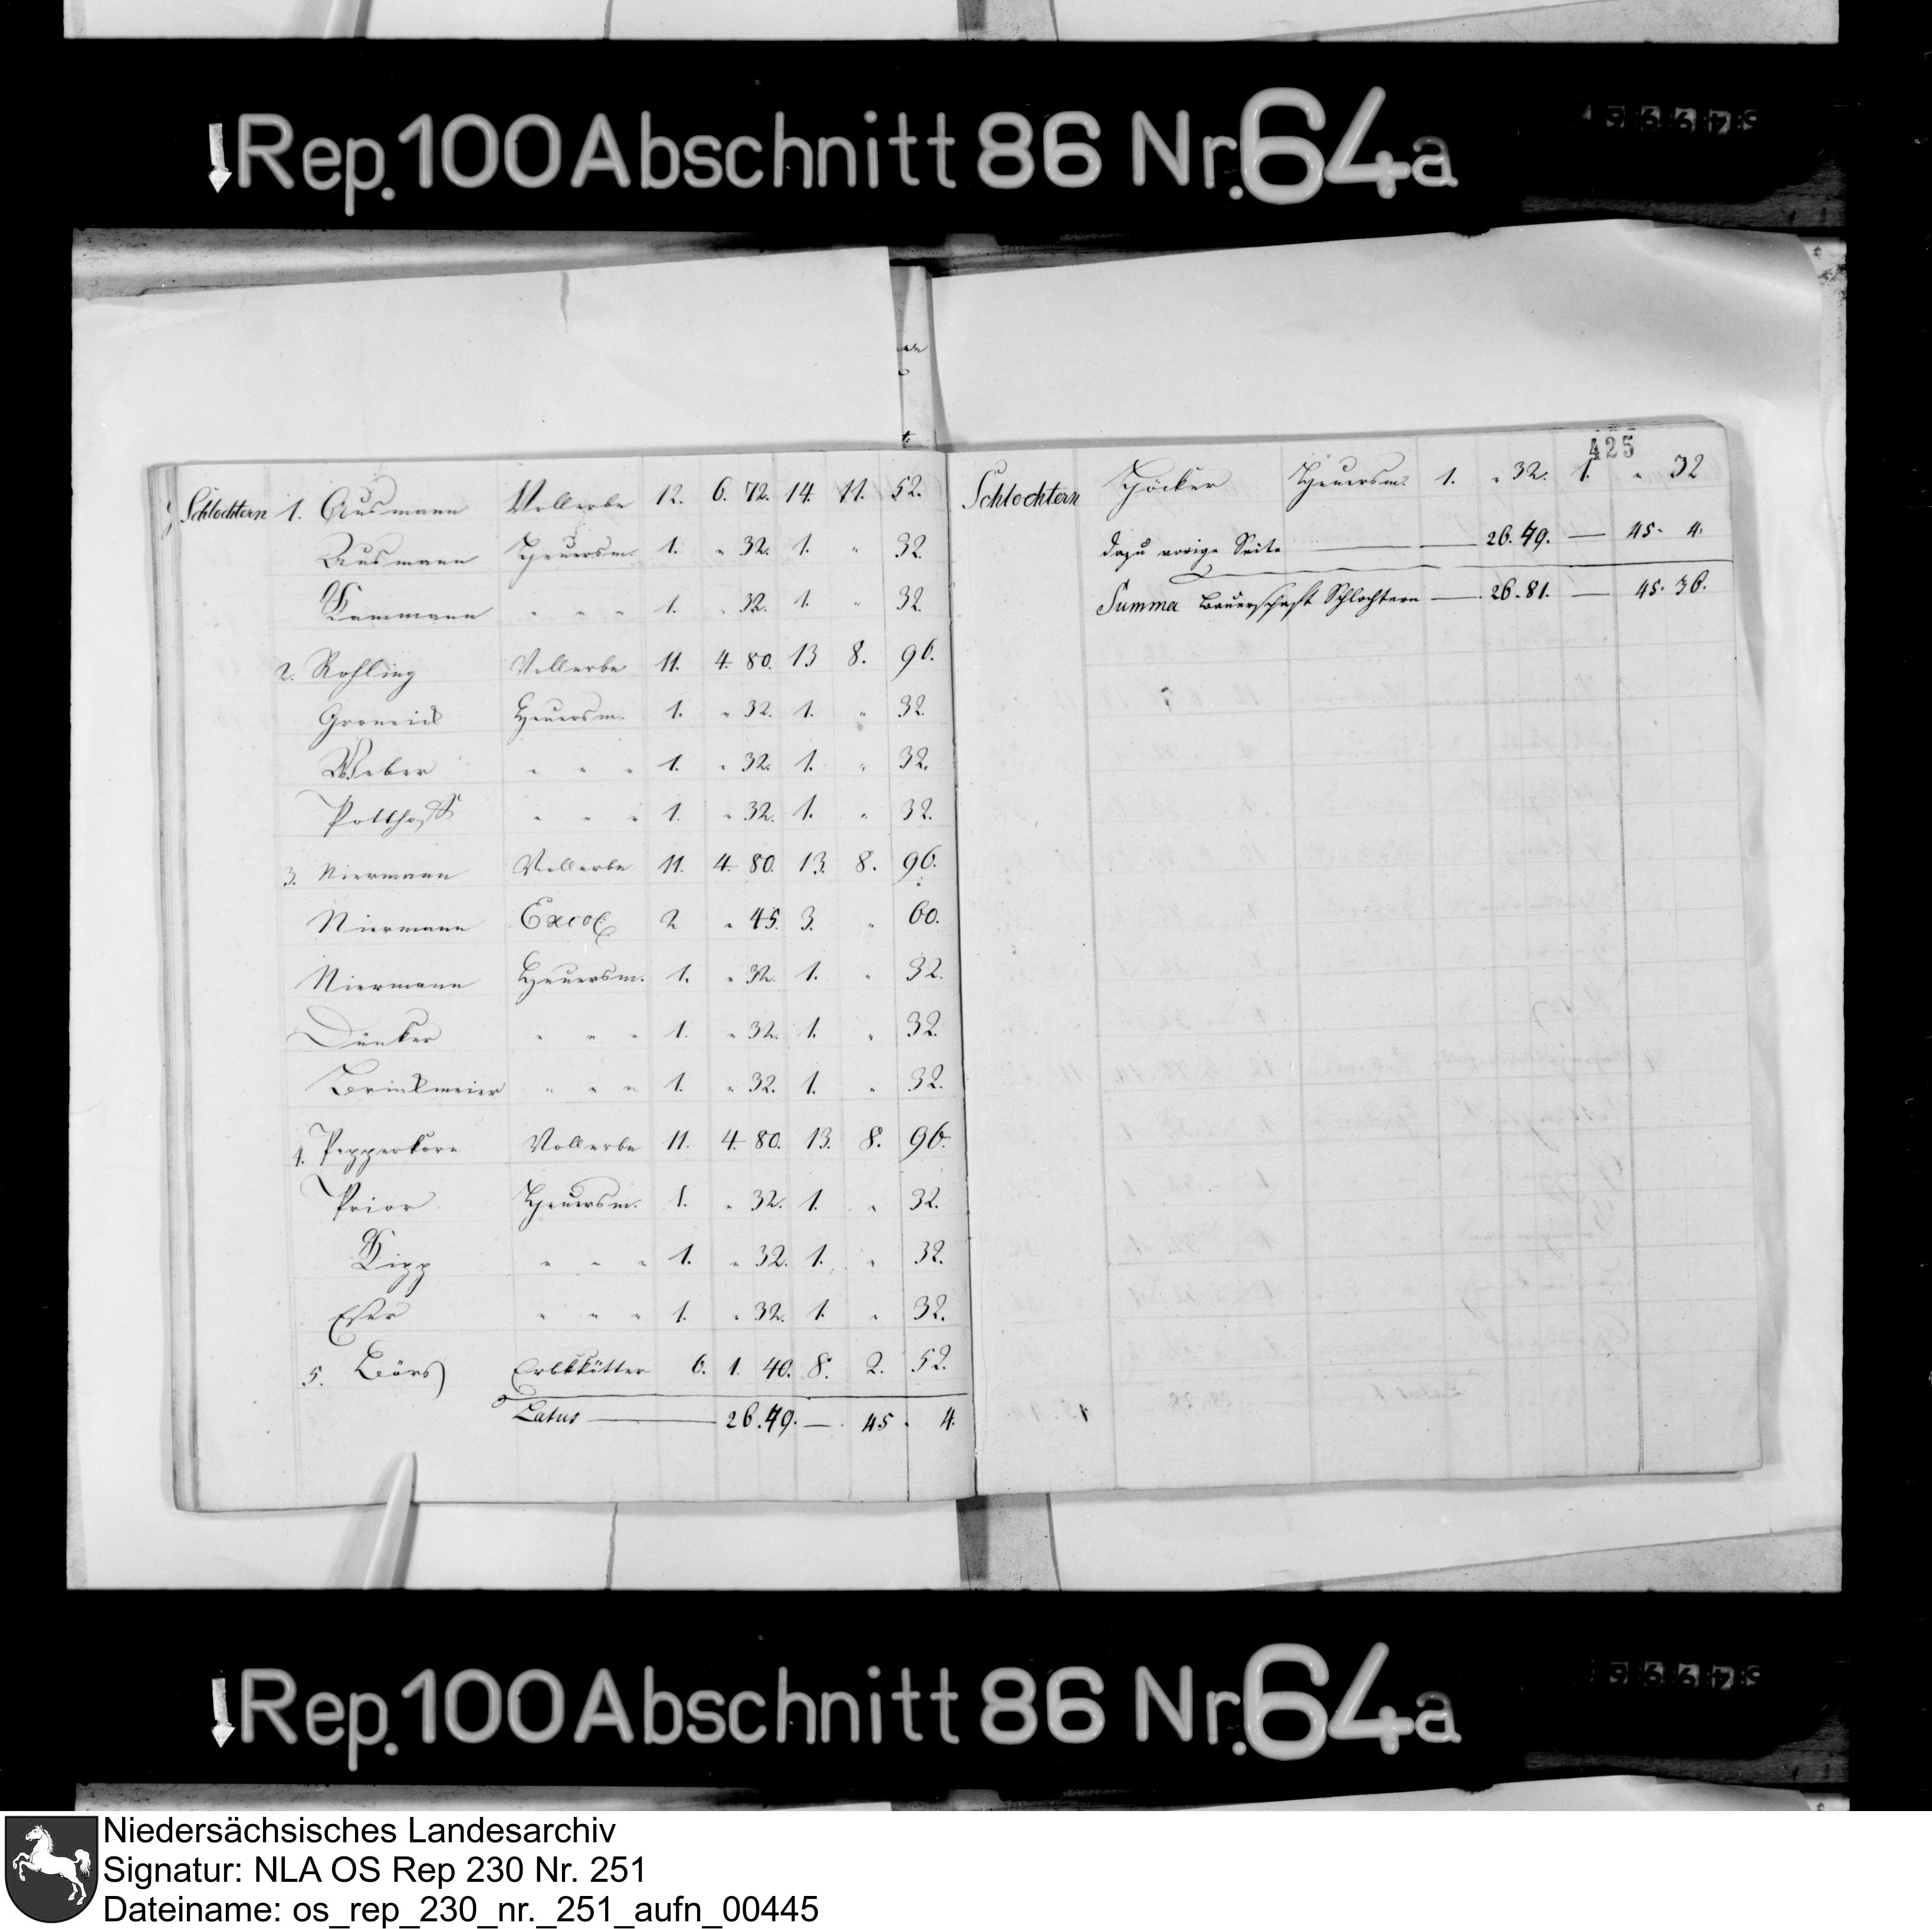 Rep. 100 Abschnitt 86 Nr. 64a
425
Schlochtern 1. Ausmann Vollerbe 12. 6. 72. 14 11. 52.
Ausmann Heuersm. 1. " 32. 1. " 32.
Kammann " " " 1. " 32. 1. " 32.
2. Rohling Vollerbe 11. 4. 80. 13 8. 96.
Groneick Heuersm. 1. " 32. 1. " 32.
Weber " " " 1. " 32. 1. " 32.
Potthoff " " " 1. " 32. 1. " 32.
3. Niermann Vollerbe 11. 4. 80. 13. 8. 96.
Niermann 2 " 45. 3. " 60.
Niermann Heuersm. 1. " 32. 1. " 32.
Dünker " " " 1. " 32. 1. " 32.
Brinkmeier " " " 1. " 32. 1. " 32.
4. Pepperkorn Vollerbe 11. 4. 80. 13. 8. 96.
Prior Heuersm. 1. " 32. 1. " 32.
Kipp " " " 1. " 32. 1. " 32.
" " " 1. " 32. 1. " 32.
5. Börs Erbkötter 6. 1. 40. 8. 2. 52.
Latus — 26. 49. — 45. 4.
Schlochtern Höcker Heuersm. 1. " 32. 1. " 32
dazu vorige Seite — 26. 49. — 45. 4.
Summa Bauerschaft Schlochtern — 26. 81. — 45. 36.
Rep. 100 Abschnitt 86 Nr. 64a
Niedersächsisches Landesarchiv
Signatur: NLA OS Rep 230 Nr. 251
Dateiname: os_rep_230_nr._251_aufn_00445